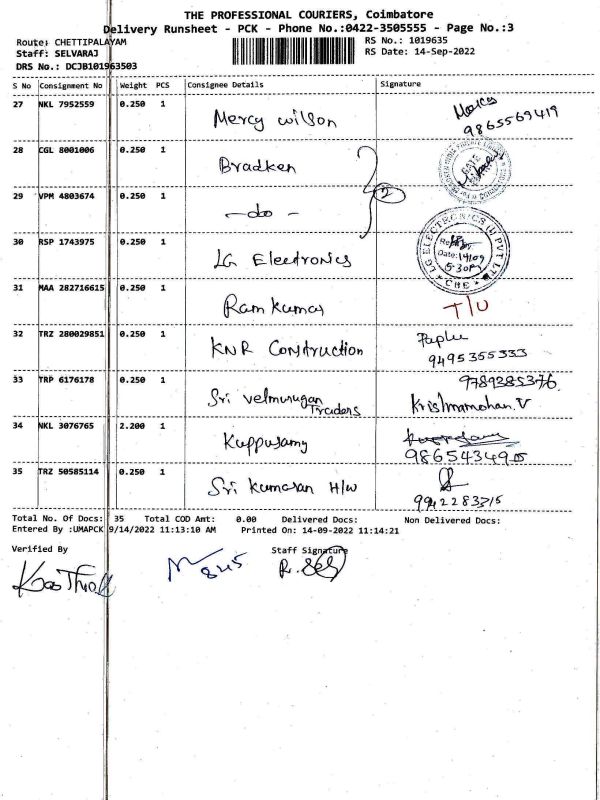 THE PROFESSIONAL COURIERS, Coimbatore
Delivery Runsheet - PCK - Phone No.:0422-3505555 - Page No.:3
Route: CHETTIPALAYAM RS No.: 1019635
Staff: SELVARAJ RS Date: 14-Sep-2022
DRS No.: DCJB101963503
S No Consignment No Weight PCS Consignee Details Signature
27 NKL 7952559 0.250 1 Mercy Wilson Mercy
9865569419
28 CGL 8001006 0.250 1 Bradken
29 VPM 4803674 0.250 1 -do- 2
30 RSP 1743975 0.250 1 LG Electronics LG ELECTRONICS (I) PVT LTD CBE Date: 14/09 5:30
31 MAA 282716615 0.250 1 Ram kumar T/U
32 TRZ 280029851 0.250 1 KNR Construction
9495355333
33 TRP 6176178 0.250 1 Sri velmurugan Traders 9789385376
Krishnamohan.V
34 NKL 3076765 2.200 1 Kuppusamy
9865434905
35 TRZ 50585114 0.250 1 Sri kumaran H/w
9942283715
Total No. Of Docs: 35 Total COD Amt: 0.00 Delivered Docs: Non Delivered Docs:
Entered By :UMAPCK 9/14/2022 11:13:10 AM Printed On: 14-09-2022 11:14:21
Verified By Staff Signature
845